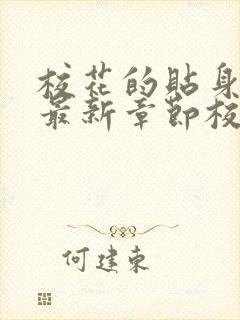 校花的贴身
最新章节校
何建东